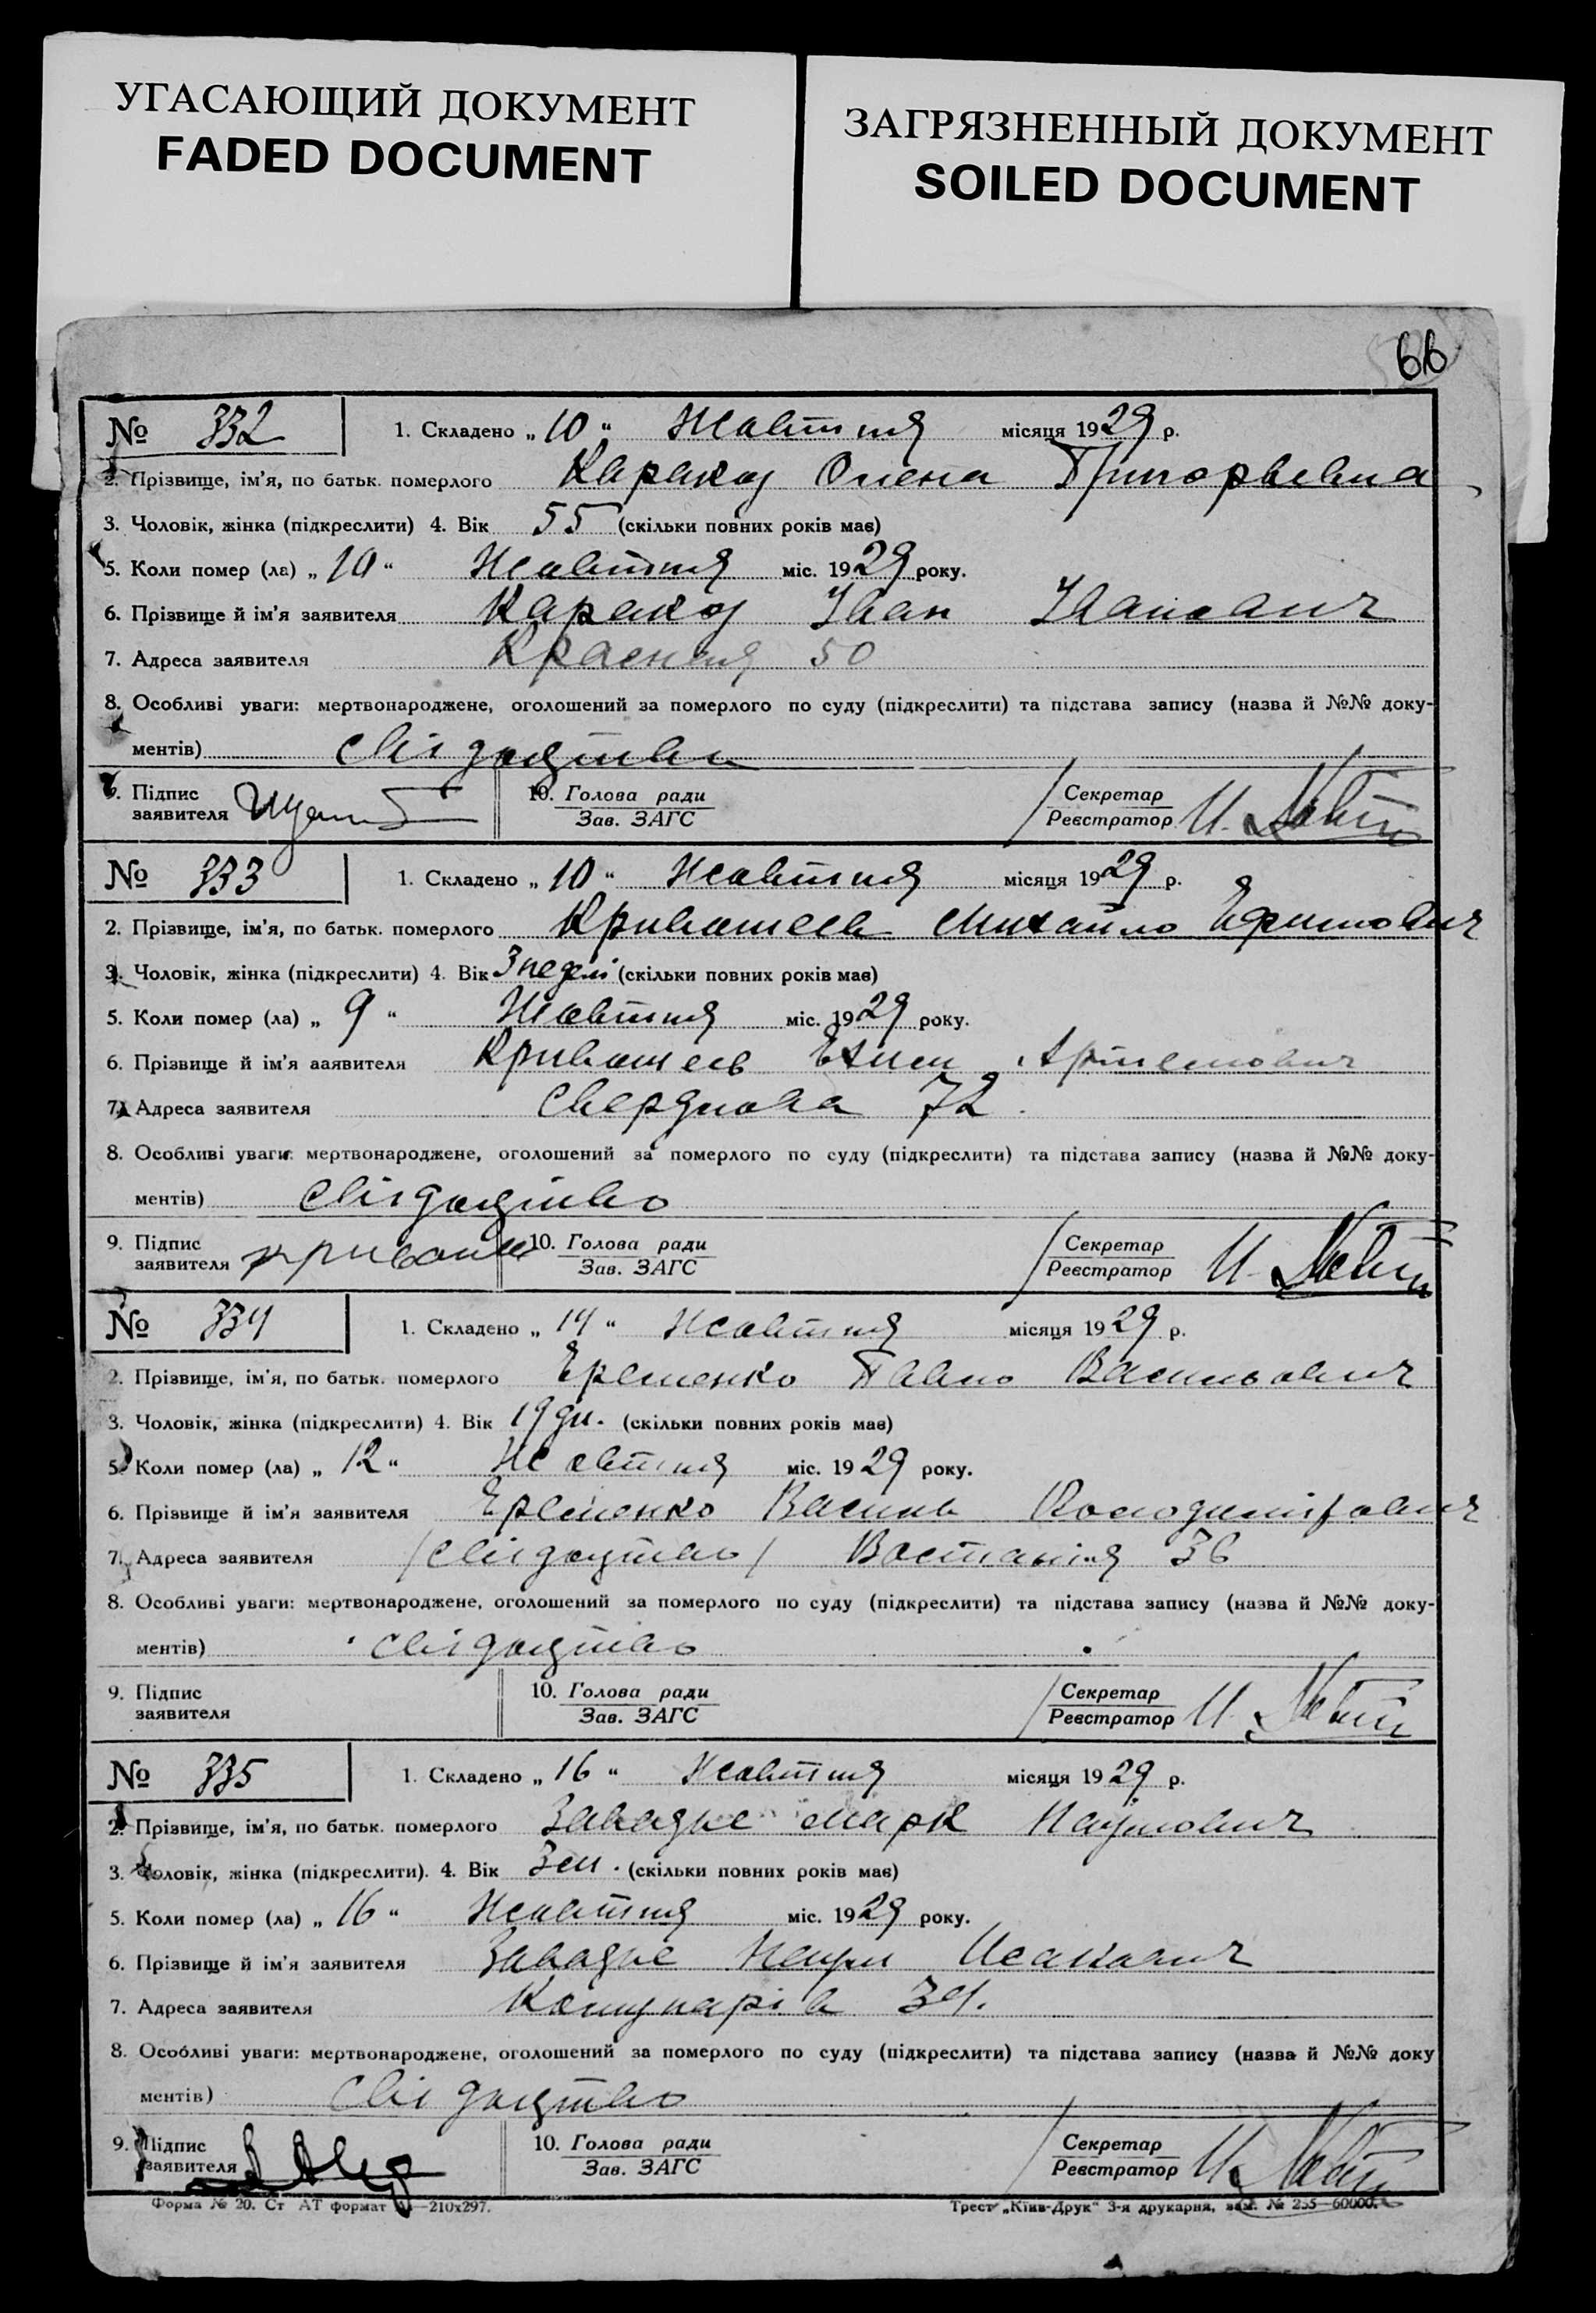 УГАСАЮЩИЙ ДОКУМЕНТ
FADED DOCUMENT
ЗАГРЯЗНЕННЫЙ ДОКУМЕНТ
SOILED DOCUMENT
66
№ 332 1. Складено „ 10 “ Жовтня місяця 1929 р.
2. Прізвище, ім'я, по батьк. померлого Каракоз Олена Григорьевна
3. Чоловік, жінка (підкреслити) 4. Вік 55 (скільки повних років має)
5. Коли помер (ла) „ 10 “ Жовтня міс. 1929 року.
6. Прізвище й ім'я заявителя Каракоз Іван Іванович
7. Адреса заявителя Красная 50
8. Особливі уваги: мертвонароджене, оголошений за померлого по суду (підкреслити) та підстава запису (назва й №№ доку-
ментів) свідоцтво
9. Підпис заявителя 10. Голова ради Зав. ЗАГС Секретар Реєстратор
№ 333 1. Складено „ 10 “ Жовтня місяця 1929 р.
2. Прізвище, ім'я, по батьк. померлого Кривошеєв Михайло Ефимович
3. Чоловік, жінка (підкреслити) 4. Вік 3 неделі (скільки повних років має)
5. Коли помер (ла) „ 9 “ Жовтня міс. 1929 року.
6. Прізвище й ім'я заявителя Кривошеєв Артемович
7. Адреса заявителя Свердлова 72
8. Особливі уваги: мертвонароджене, оголошений за померлого по суду (підкреслити) та підстава запису (назва й №№ доку-
ментів) свідоцтво
9. Підпис заявителя 10. Голова ради Зав. ЗАГС Секретар Реєстратор
№ 334 1. Складено „ 14 “ Жовтня місяця 1929 р.
2. Прізвище, ім'я, по батьк. померлого Еременко Павло Васильович
3. Чоловік, жінка (підкреслити) 4. Вік 19 дн. (скільки повних років має)
5. Коли помер (ла) „ 12 “ Жовтня міс. 1929 року.
6. Прізвище й ім'я заявителя Еременко Василь Володимірович
7. Адреса заявителя /свідоцтво/ Востания 36
8. Особливі уваги: мертвонароджене, оголошений за померлого по суду (підкреслити) та підстава запису (назва й №№ доку-
ментів) свідоцтво
9. Підпис заявителя 10. Голова ради Зав. ЗАГС Секретар Реєстратор
№ 335 1. Складено „ 16 “ Жовтня місяця 1929 р.
2. Прізвище, ім'я, по батьк. померлого Марк Наумович
3. Чоловік, жінка (підкреслити). 4. Вік 3 м. (скільки повних років має)
5. Коли помер (ла) „ 16 “ Жовтня міс. 1929 року.
6. Прізвище й ім'я заявителя Наум Исакович
7. Адреса заявителя Комунарів
8. Особливі уваги: мертвонароджене, оголошений за померлого по суду (підкреслити) та підстава запису (назва й №№ доку
ментів) свідоцтво
9. Підпис заявителя 10. Голова ради Зав. ЗАГС Секретар Реєстратор
Форма № 20. Ст АТ формат —210х297. Трест „Київ-Друк“ 3-я друкарня, зам. № 255—60000.